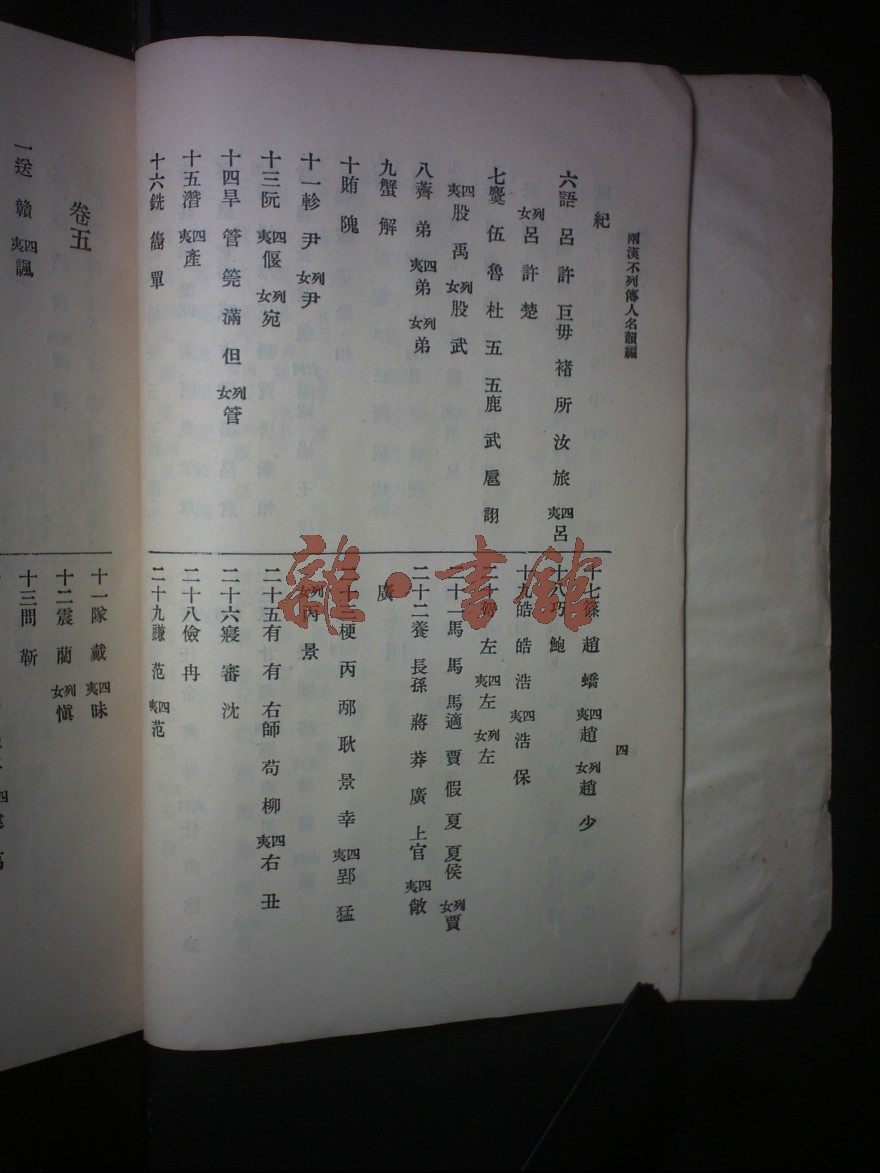 兩漢不列傳人名韻編
四
紀
六語 呂 許 巨毋 褚 所 汝 旅 四夷呂
列女呂 許 楚
七麌 伍 魯 杜 五 五鹿 武 扈 詡
四夷股 禹 列女股 武
八薺 弟 四夷弟 列女弟
九蟹 解
十賄 隗
十一軫 尹 列女尹
十三阮 四夷偃 列女宛
十四旱 管 筦 滿 但 列女管
十五潸 四夷產
十六銑 雋 單
十七篠 趙 蟜 四夷趙 列女趙 少
十八巧 鮑
十九皓 皓 浩 四夷浩 保
二十哿 左 四夷左 列女左
二十一馬 馬 馬適 賈 假 夏 夏侯 列女賈
二十二養 長孫 蔣 莽 廣 上官 四夷敞
廣
二十三梗 丙 邴 耿 景 幸 四夷郢 猛
列女丙 景
二十五有 有 右師 苟 柳 四夷右 丑
二十六寢 審 沈
二十八儉 冉
二十九豏 范 四夷范
卷五
一送 贛 四夷諷
十一隊 戴 四夷昧
十二震 藺 列女慎
十三問 靳
雜·書館